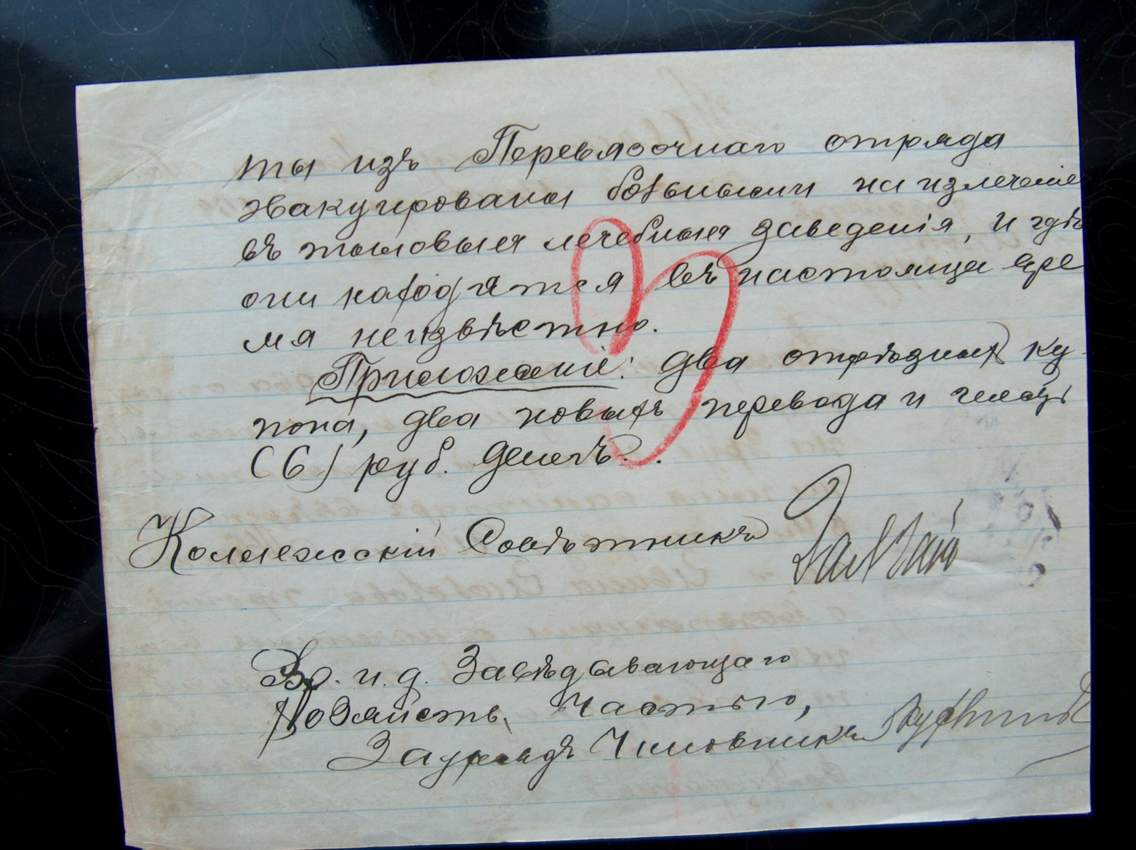 ты изъ Перевязочнаго отряда
эвакуированы больными на излеченіе
въ тыловыя лечебныя заведенія, и гдѣ
они находятся въ настоящее вре
мя неизвѣстно.
Приложеніе: два отрѣзныхъ ку-
пона, два новыхъ перевода и шесть
(6) руб. денегъ.
Коллежскій Совѣтникъ
Вр. и. д. Завѣдывающаго
Хозяйств. Частью,
Заурядъ Чиновникъ